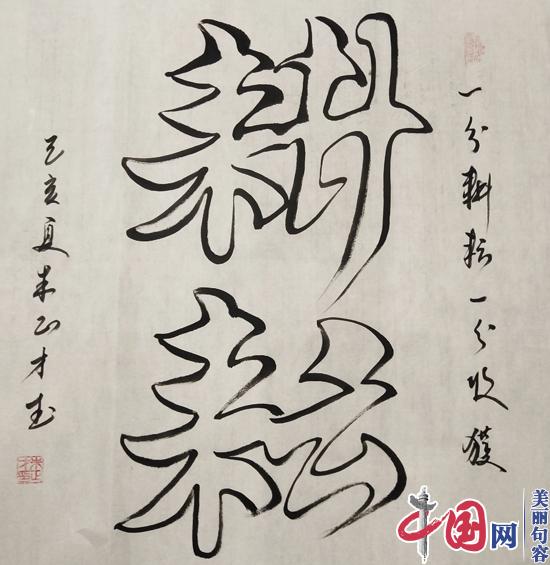 一分耕耘一分收獲
耕
耘
己亥夏朱正才書
中国网
美丽句容